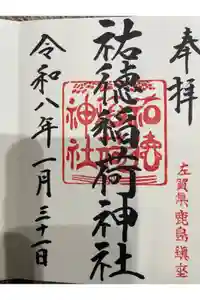 奉拝
佐賀県鹿島鎮座
祐徳稲荷神社
祐徳
神社
令和八年一月三十一日